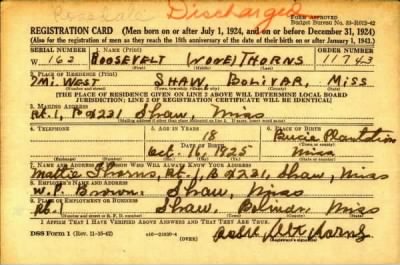 Discharged
FORM APPROVED
Budget Bureau No. 33-R012-42
REGISTRATION CARD (Men born on or after July 1, 1924, and on or before December 31, 1924)
(Also for the registration of men as they reach the 18th anniversary of the date of their birth on or after January 1, 1943.)
SERIAL NUMBER 1. NAME (Print) ORDER NUMBER
W 162 ROOSEVELT (NONE) THORNS 11743
(First) (Middle) (Last)
2. PLACE OF RESIDENCE (Print)
7 Mi. WEST SHAW, BOLIVAR, MISS
(Number and street) (Town, township, village, or city) (County) (State)
[THE PLACE OF RESIDENCE GIVEN ON LINE 2 ABOVE WILL DETERMINE LOCAL BOARD
JURISDICTION; LINE 2 OF REGISTRATION CERTIFICATE WILL BE IDENTICAL]
3. MAILING ADDRESS
Rt. 1, Bx 221, Shaw Miss
4. TELEPHONE 5. AGE IN YEARS 6. PLACE OF BIRTH
18 Plantation
DATE OF BIRTH
Oct. 16, 1925 Miss
(Mo.) (Day) (Yr.)
7. NAME AND ADDRESS OF PERSON WHO WILL ALWAYS KNOW YOUR ADDRESS
Mattie Thorns, Rt. 1, Bx 221, Shaw, Miss
8. EMPLOYER'S NAME AND ADDRESS
W. P. Brown, Shaw, Miss
9. PLACE OF EMPLOYMENT OR BUSINESS
Rt. 1 Shaw, Bolivar, Miss
(Number and street or R. F. D. number) (Town) (County) (State)
I AFFIRM THAT I HAVE VERIFIED ABOVE ANSWERS AND THAT THEY ARE TRUE.
DSS Form 1 (Rev. 11-16-42) (OVER)
(Registrant's signature)